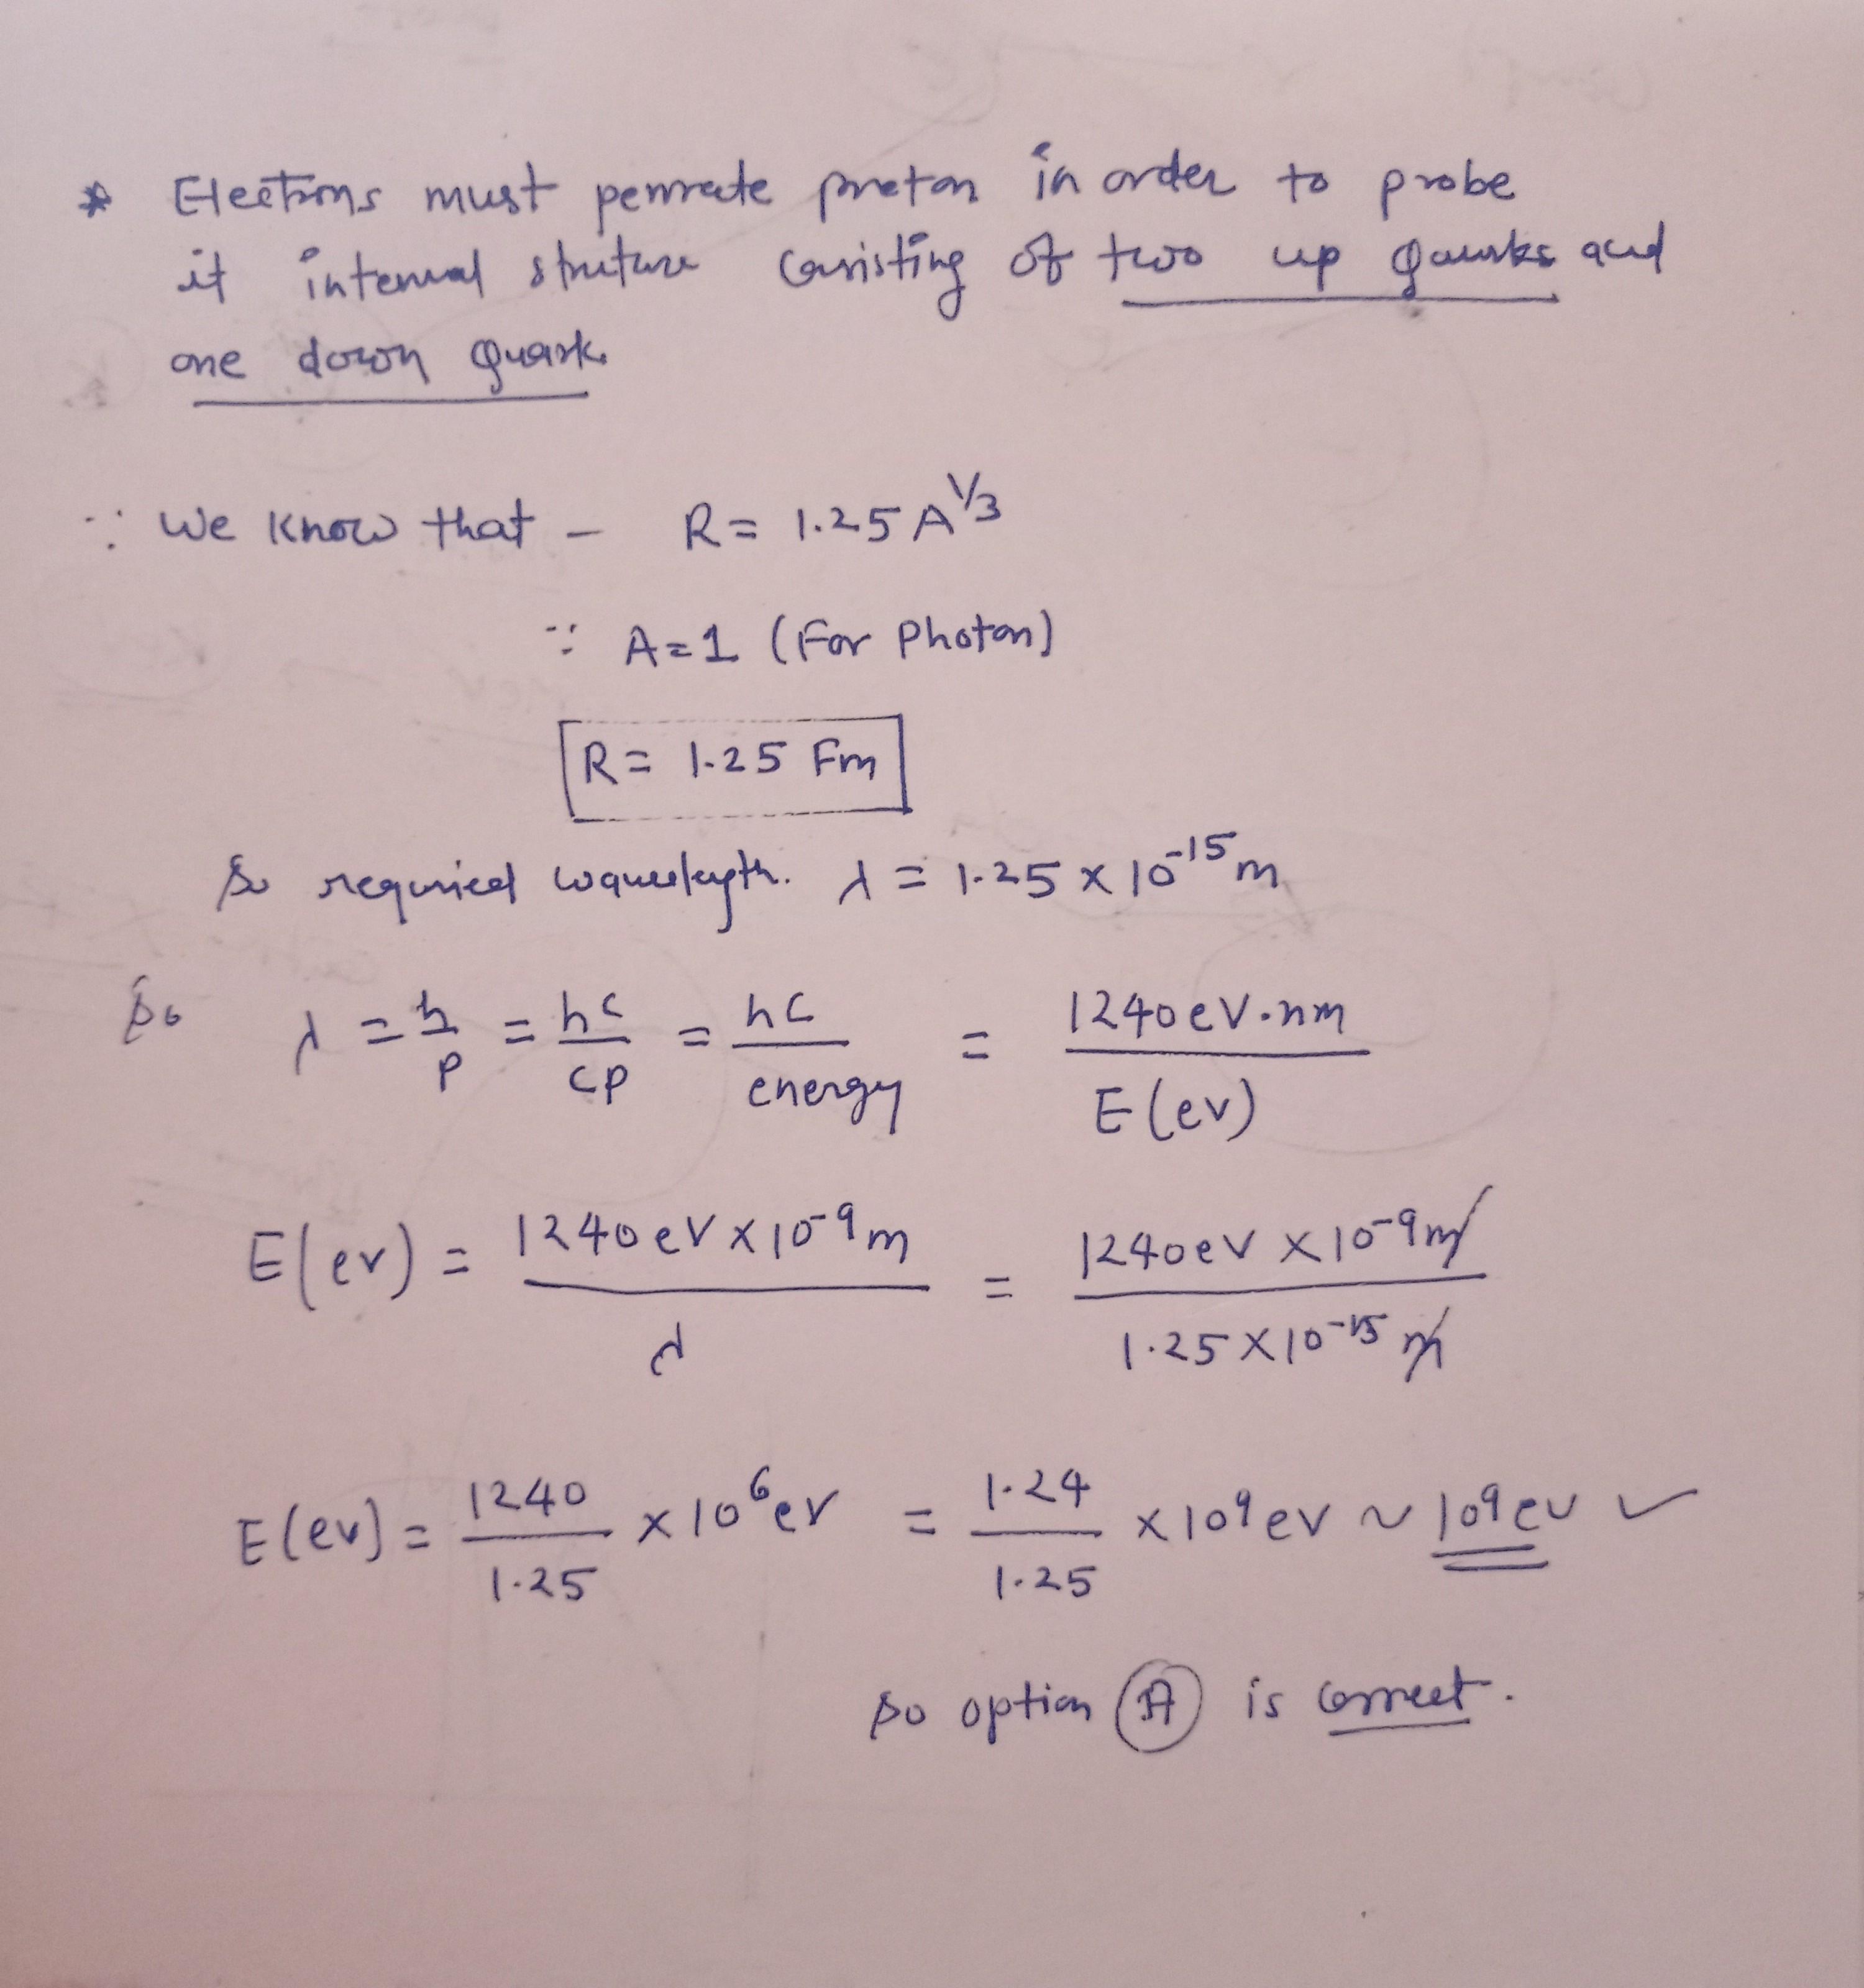 * Electrons must penrate proton in order to probe
it internal struture consisting of two up quarks and
one down quark.
∵ We know that - R = 1.25 A^1/3
∵ A=1 (For Photon)
R = 1.25 Fm
So required wavelength. λ = 1.25 × 10^-15 m
So λ = h/p = hc/cp = hc/energy = 1240 eV.nm/E(ev)
E(ev) = 1240 eV × 10^-9 m/λ = 1240 eV × 10^-9 m/1.25 × 10^-15 m
E(ev) = 1240/1.25 × 10^6 ev = 1.24/1.25 × 10^9 ev ~ 10^9 ev ✓
So option (A) is correct.